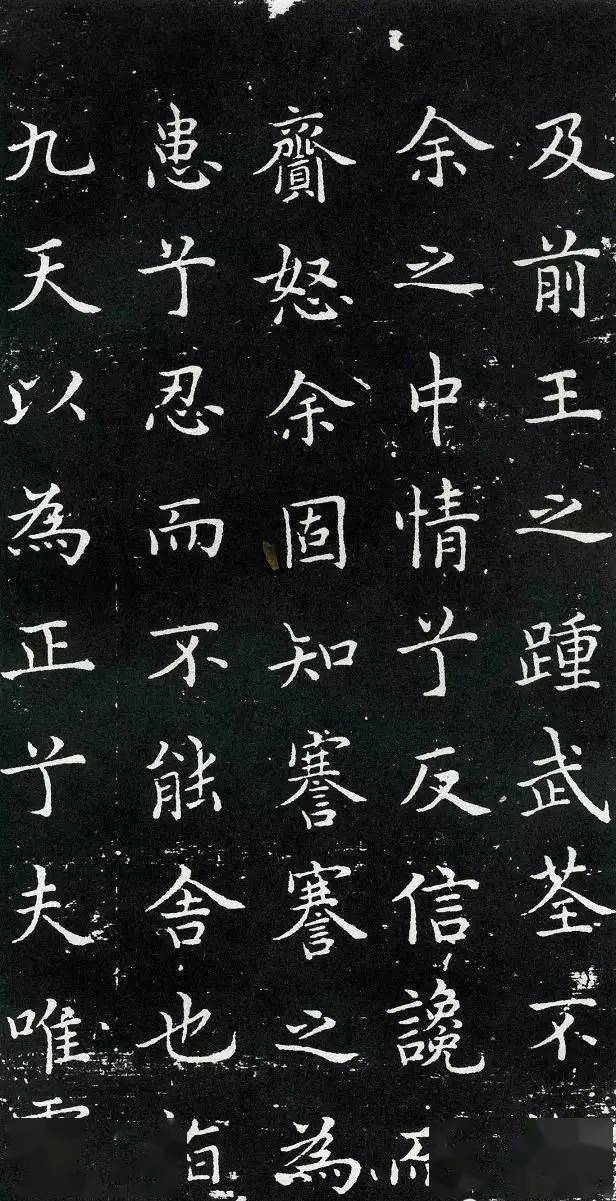 及前王之踵武荃不
余之中情兮反信讒
齎怒余固知謇謇之為
患兮忍而不能舍也
九天以為正兮夫唯